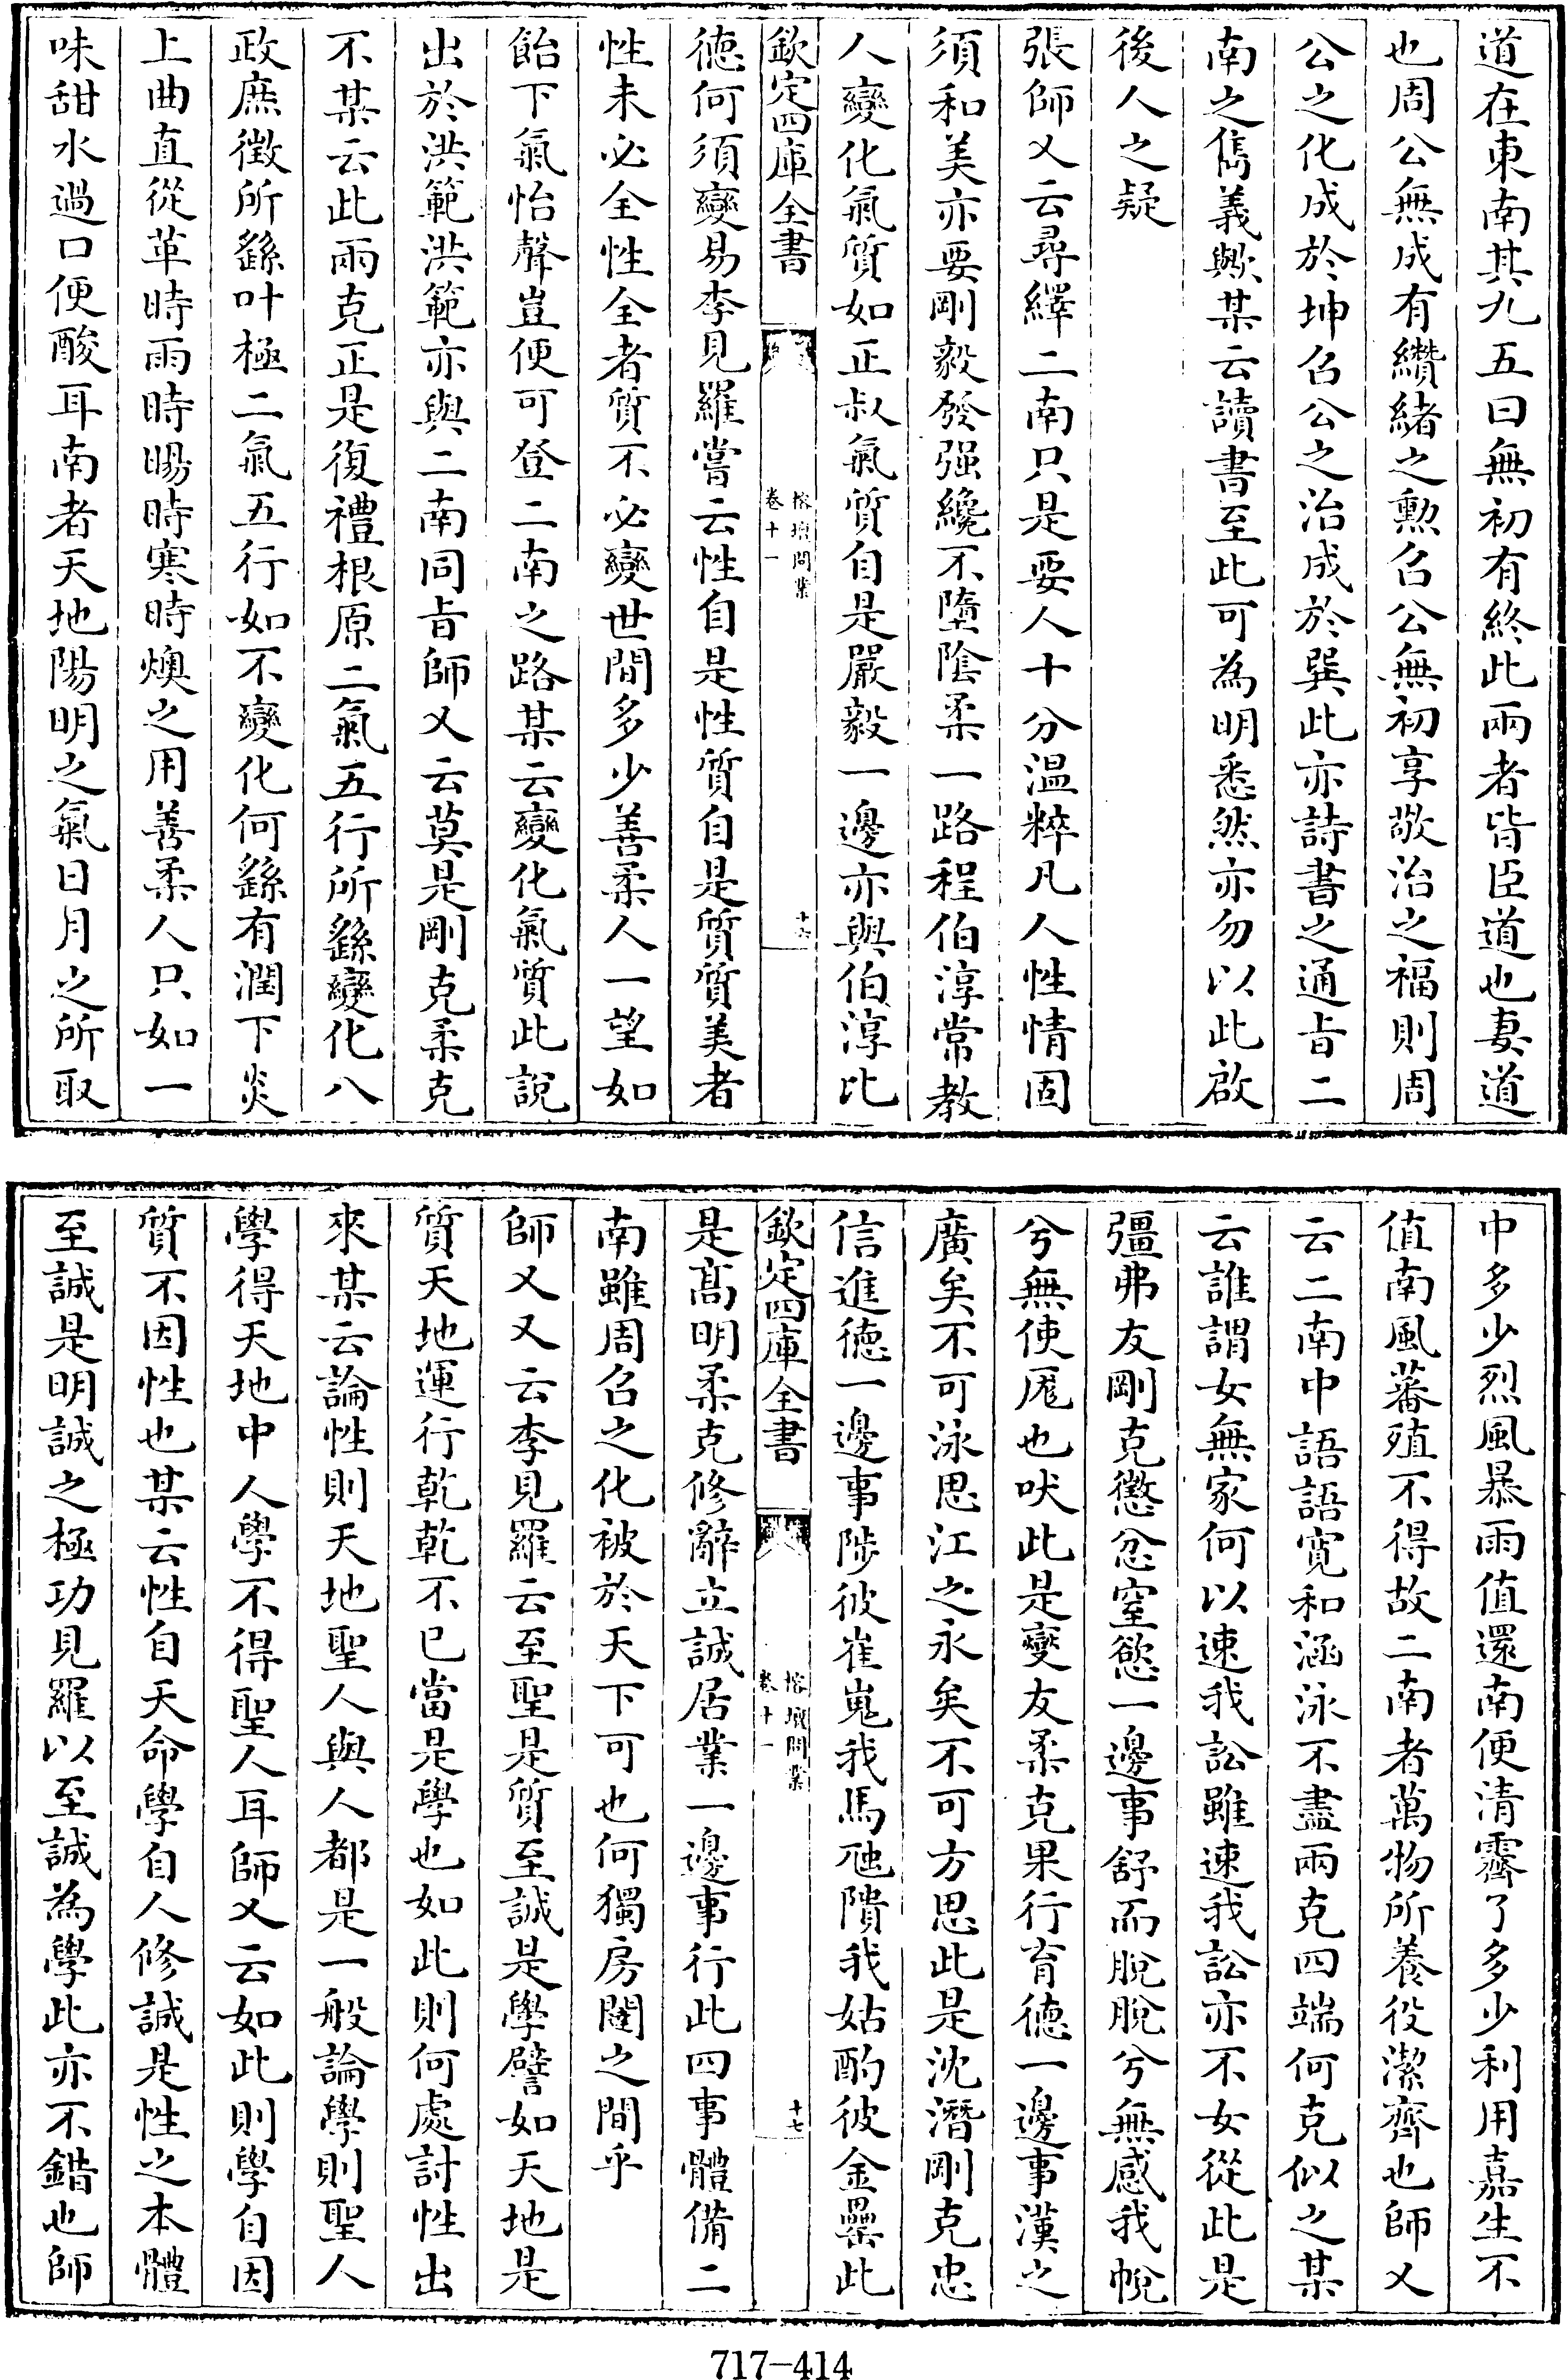 道在東南其九五曰無初有終此兩者皆臣道也妻道
也周公無成有纘緒之勲召公無初享敬治之福則周
公之化成於坤召公之治成於巽此亦詩書之通㫖二
南之雋義歟某云讀書至此可為明悉然亦勿以此啟
後人之疑
張師又云尋繹二南只是要人十分温粹凡人性情固
須和美亦要剛毅發强纔不墮陰柔一路程伯淳常教
人變化氣質如正叔氣質自是嚴毅一邊亦與伯淳比
欽定四庫全書
榕壇問業
卷十一
十六
徳何須變易李見羅嘗云性自是性質自是質質美者
性未必全性全者質不必變世間多少善柔人一望如
飴下氣怡聲豈便可登二南之路某云變化氣質此說
出於洪範洪範亦與二南同㫖師又云莫是剛克柔克
不某云此兩克正是復禮根原二氣五行所繇變化八
政庶徴所繇叶極二氣五行如不變化何繇有潤下炎
上曲直從革時雨時暘時寒時燠之用善柔人只如一
味甜水過口便酸耳南者天地陽明之氣日月之所取
中多少烈風暴雨值還南便清霽了多少利用嘉生不
值南風蕃殖不得故二南者萬物所養役潔齊也師又
云二南中語語寛和涵泳不盡兩克四端何克似之某
云誰謂女無家何以速我訟雖速我訟亦不女從此是
彊弗友剛克懲忿窒慾一邊事舒而脫脫兮無感我帨
兮無使尨也吠此是變友柔克果行育徳一邊事漢之
廣矣不可泳思江之永矣不可方思此是沈潛剛克忠
信進徳一邊事陟彼崔嵬我馬虺隤我姑酌彼金罍此
欽定四庫全書
榕壇問業
卷十一
十七
是髙明柔克修辭立誠居業一邊事行此四事體備二
南雖周召之化被於天下可也何獨房闥之間乎
師又又云李見羅云至聖是質至誠是學譬如天地是
質天地運行乾乾不已當是學也如此則何處討性出
來某云論性則天地聖人與人都是一般論學則聖人
學得天地中人學不得聖人耳師又云如此則學自因
質不因性也某云性自天命學自人修誠是性之本體
至誠是明誠之極功見羅以至誠為學此亦不錯也師
717-414